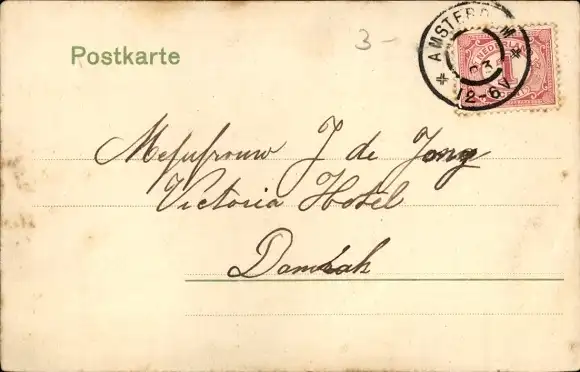 Postkarte
3-
AMSTERDAM
12-6V
NEDERLAND
1
Mejufrouw J de Jong
Victoria Hotel
Damrak